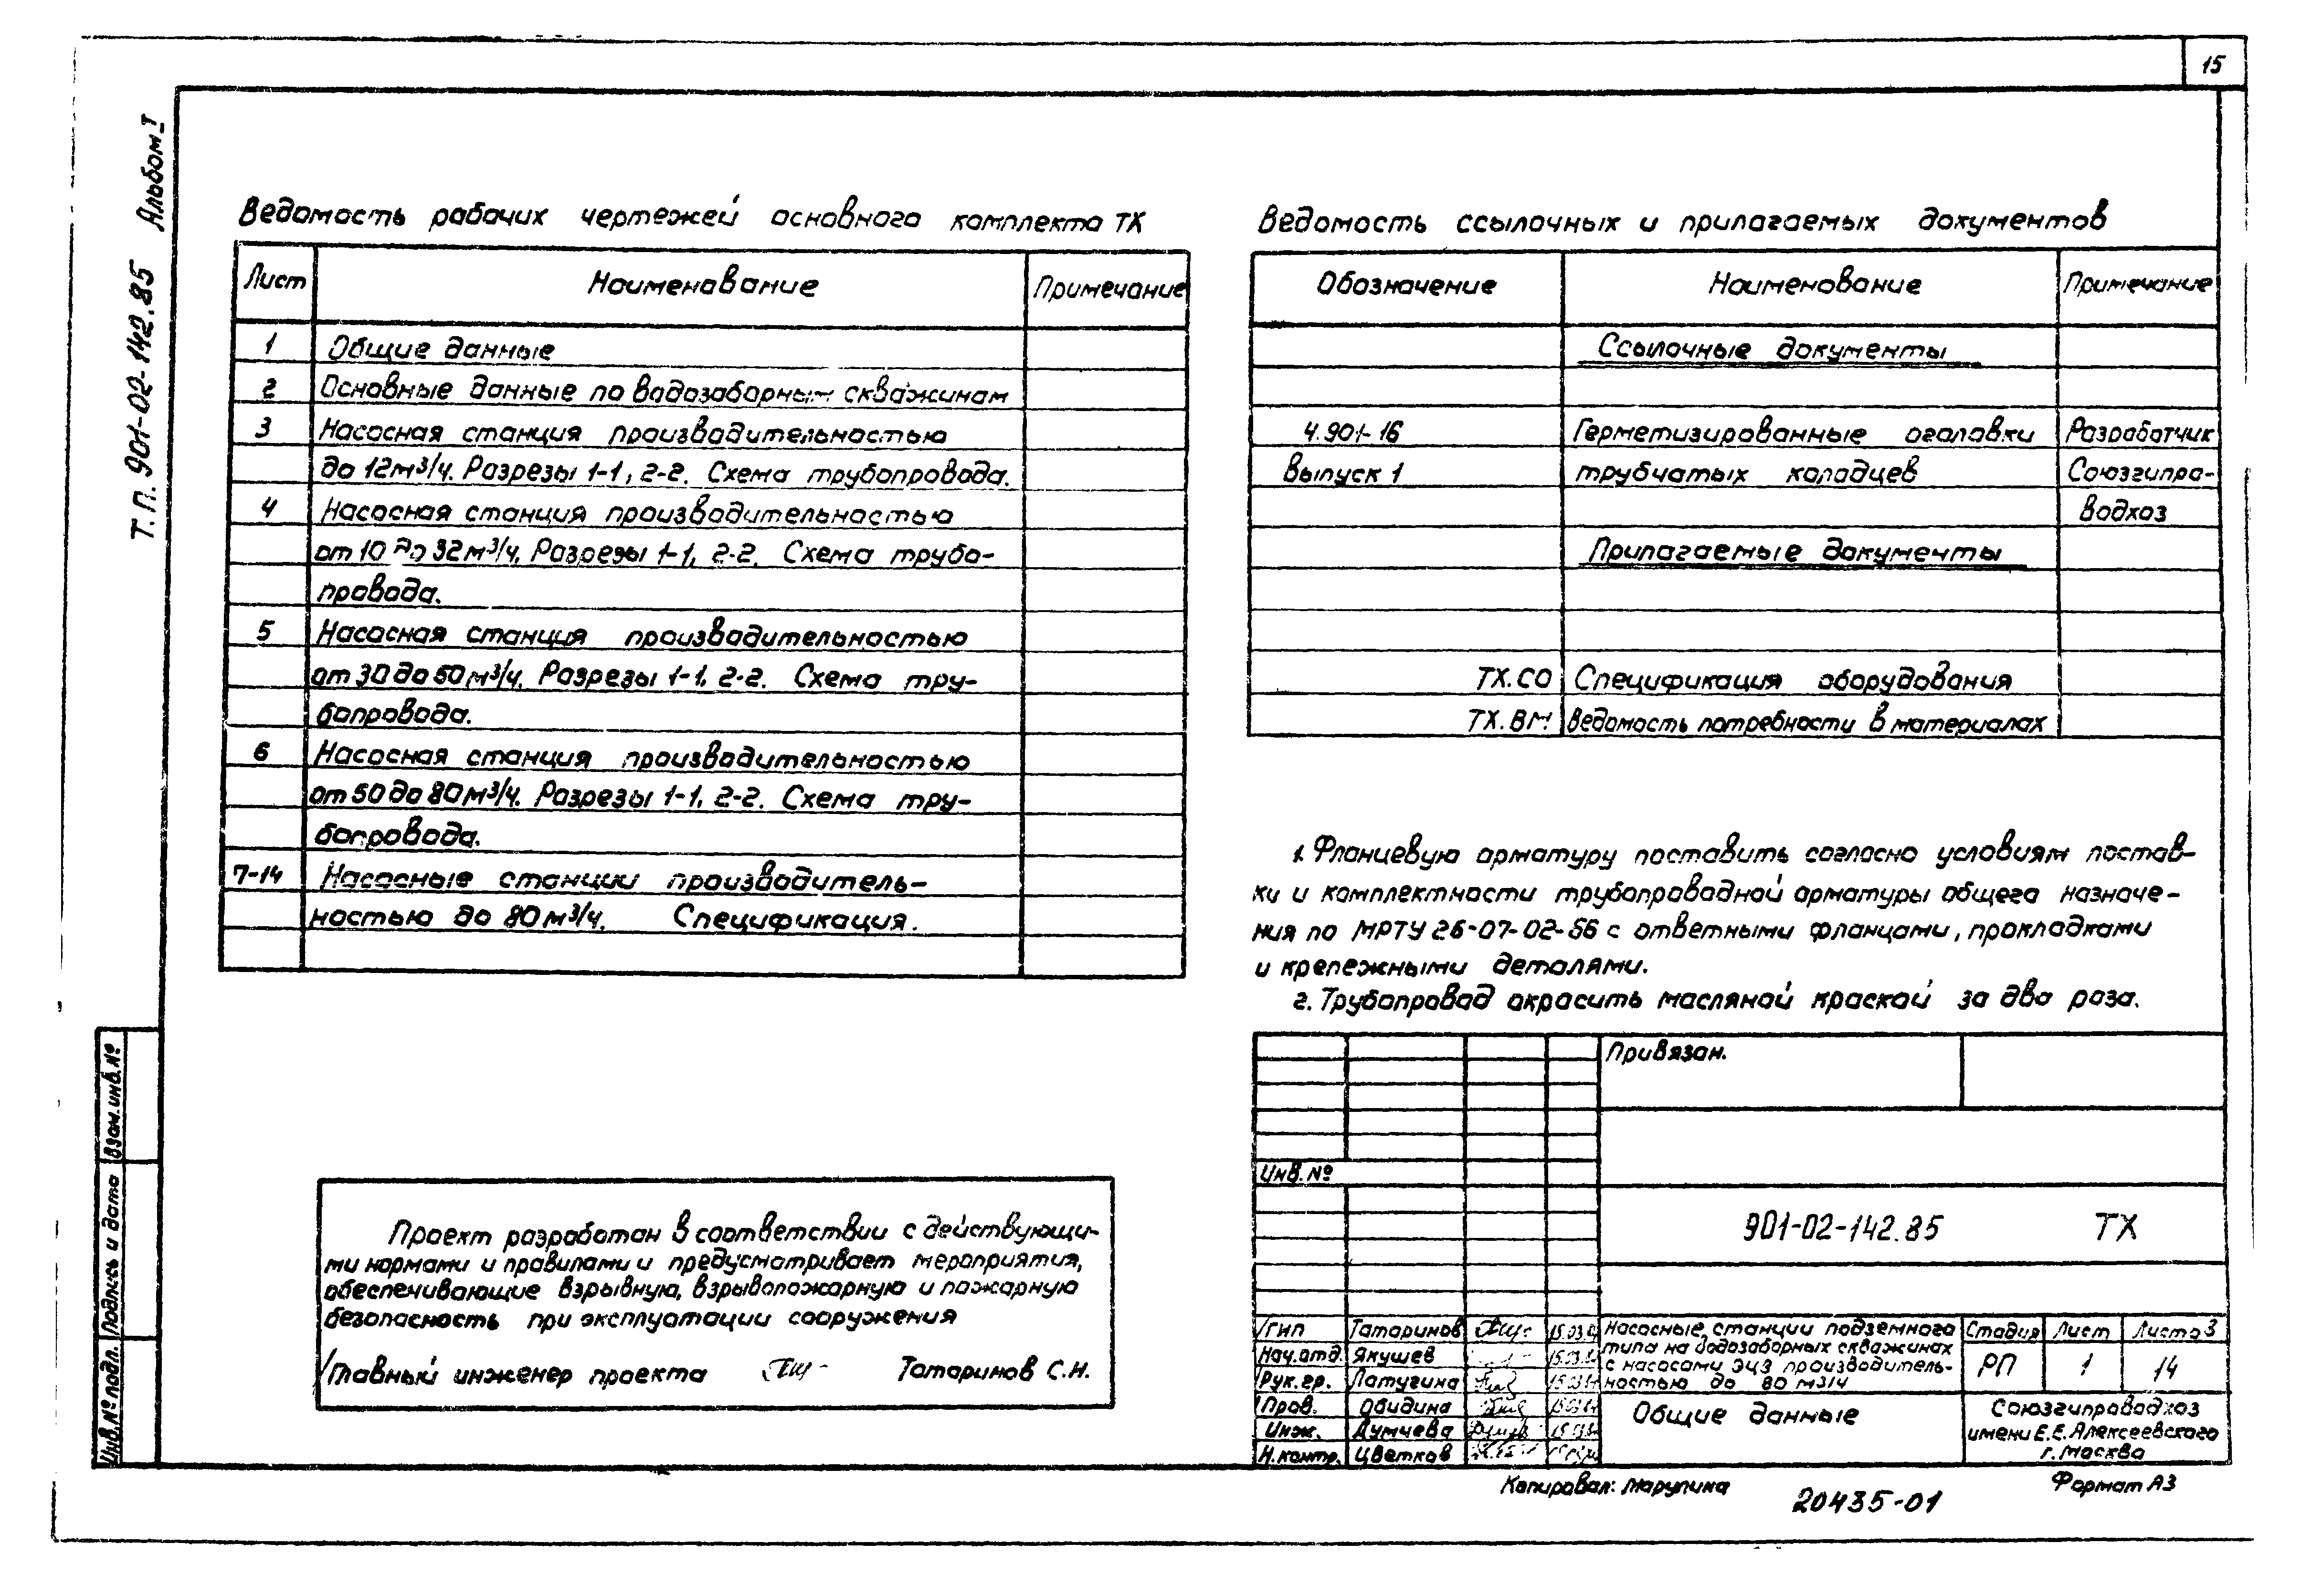 15
Т.П. 901-02-142.85 Альбом I
Ведомость рабочих чертежей основного комплекта ТХ
Лист Наименование Примечание
1 Общие данные
2 Основные данные по водозаборным скважинам
3 Насосная станция производительностью
до 12м³/ч. Разрезы 1-1, 2-2. Схема трубопровода.
4 Насосная станция производительностью
от 10 до 32м³/ч. Разрезы 1-1, 2-2. Схема трубо-
провода.
5 Насосная станция производительностью
от 30 до 50м³/ч. Разрезы 1-1, 2-2. Схема тру-
бопровода.
6 Насосная станция производительностью
от 50 до 80м³/ч. Разрезы 1-1, 2-2. Схема тру-
бопровода.
7-14 Насосные станции производитель-
ностью до 80м³/ч. Спецификация.
Ведомость ссылочных и прилагаемых документов
Обозначение Наименование Примечание
Ссылочные документы
4.901-16 Герметизированные оголовки Разработчик
Выпуск 1 трубчатых колодцев Союзгипро-
водхоз
Прилагаемые документы
ТХ.СО Спецификация оборудования
ТХ.ВМ Ведомость потребности в материалах
1. Фланцевую арматуру поставить согласно условиям постав-
ки и комплектности трубопроводной арматуры общего назначе-
ния по МРТУ 26-07-02-56 с ответными фланцами, прокладками
и крепежными деталями.
2. Трубопровод окрасить масляной краской за два раза.
Проект разработан в соответствии с действующи-
ми нормами и правилами и предусматривает мероприятия,
обеспечивающие взрывную, взрывопожарную и пожарную
безопасность при эксплуатации сооружения
Главный инженер проекта Татаринов С.Н.
Взам.инв.№
Подпись и дата
Инв.№ подл.
Привязан.
Инв.№
901-02-142.85 ТХ
ГИП Татаринов
Нач.отд. Якушев
Рук.гр. Латугина
Пров. Обидина
Инж. Думчева
Н.контр. Цветков
Насосные станции подземного
типа на водозаборных скважинах
с насосами ЭЦВ производитель-
ностью до 80 м3/ч
Стадия Лист Листов
РП 1 14
Общие данные
Союзгипроводхоз
имени Е.Е.Алексеевского
г.Москва
Копировал: Марулина
20435-01
Формат А3